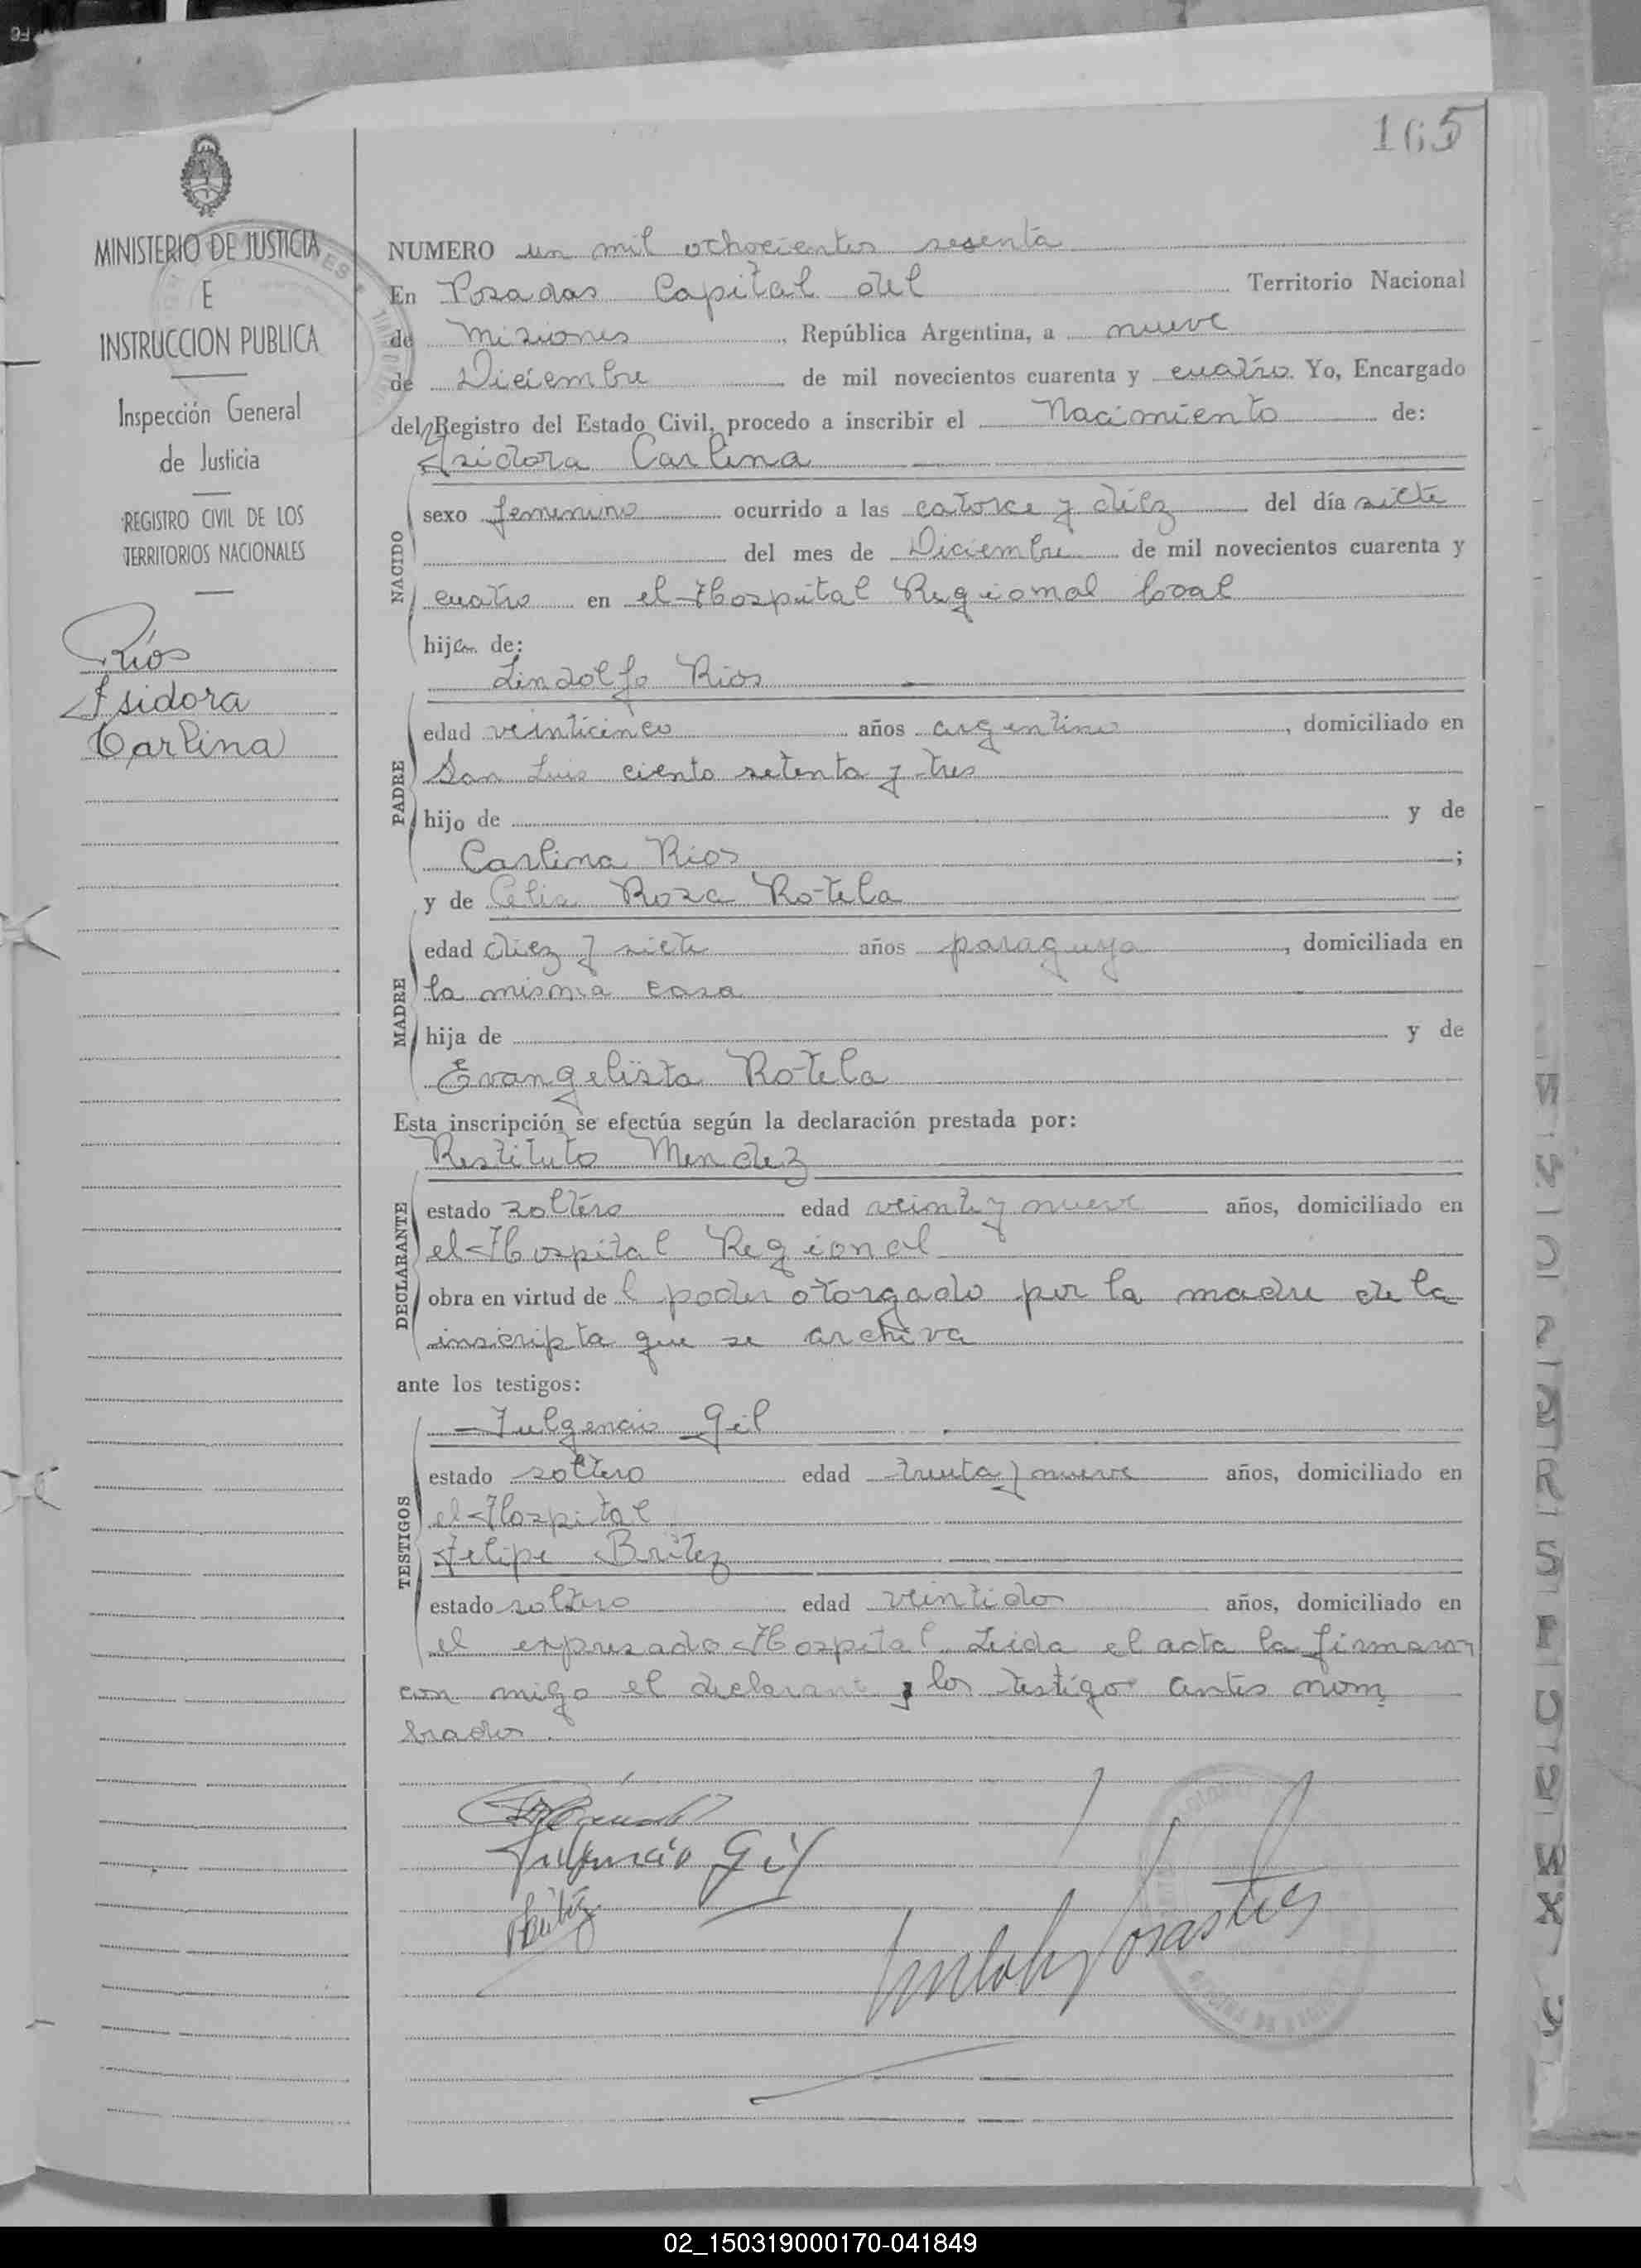 165
MINISTERIO DE JUSTICIA
E
INSTRUCCION PUBLICA
Inspección General
de Justicia
REGISTRO CIVIL DE LOS
TERRITORIOS NACIONALES
Ríos
Isidora
Carlina
NUMERO un mil ochocientos sesenta
En Posadas Capital del Territorio Nacional
de Misiones, República Argentina, a nueve
de Diciembre de mil novecientos cuarenta y cuatro. Yo, Encargado
del Registro del Estado Civil, procedo a inscribir el Nacimiento de:
Isidora Carlina
NACIDO
sexo femenino ocurrido a las catorce y diez del día siete
del mes de Diciembre de mil novecientos cuarenta y
cuatro en el Hospital Regional local
hija de:
Lindolfo Rios
PADRE
edad veinticinco años argentino, domiciliado en
San Luis ciento setenta y tres
hijo de y de
Carlina Rios;
y de Celia Rosa Rotela
MADRE
edad diez y siete años paraguya, domiciliada en
la misma casa
hija de y de
Evangelista Rotela
Esta inscripción se efectúa según la declaración prestada por:
Restituto Mendez
DECLARANTE
estado soltero edad veinte y nueve años, domiciliado en
el Hospital Regional
obra en virtud del poder otorgado por la madre de la
inscripta que se archiva
ante los testigos:
Fulgencio Gil
TESTIGOS
estado soltero edad treinta y nueve años, domiciliado en
el Hospital
Felipe Britez
estado soltero edad veintidos años, domiciliado en
el expresado Hospital. Leida el acta la firmaron
con migo el declarante y los testigos antes nom
brados.
Fulgencio Gil
FBritez
02_150319000170-041849